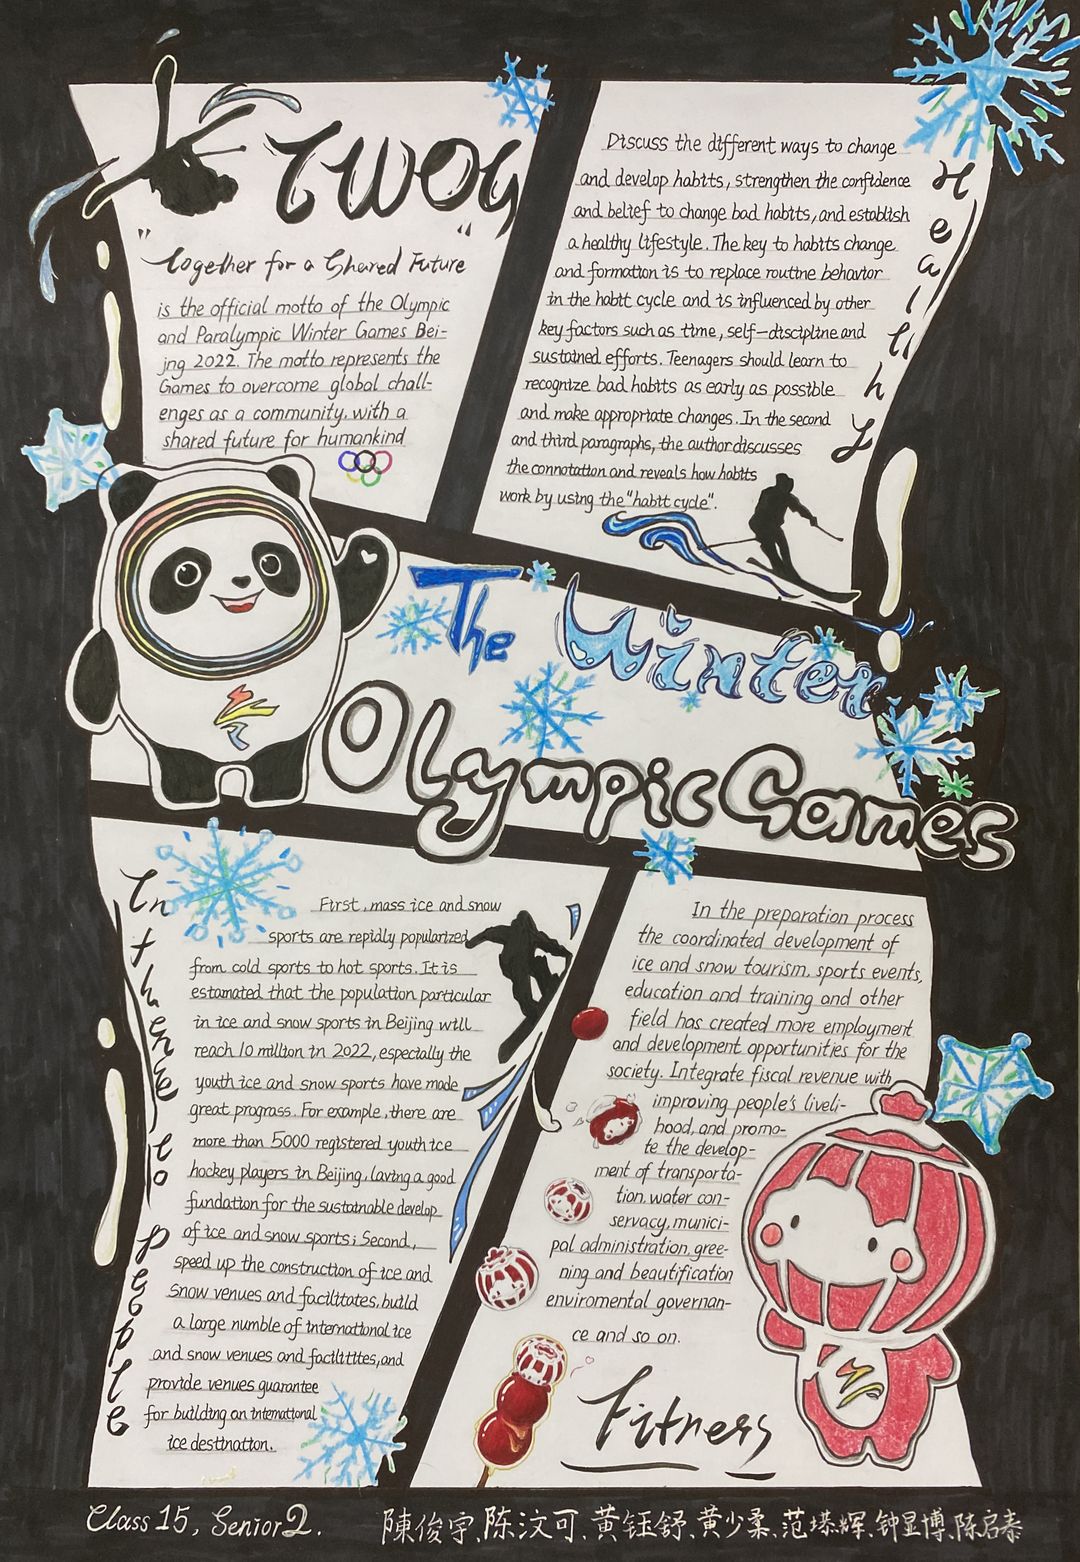 TWOG
"Together for a Shared Future"
is the official motto of the Olympic
and Paralympic Winter Games Bei-
jng 2022. The motto represents the
Games to overcome global chall-
enges as a community, with a
shared future for humankind
Healthy
Discuss the different ways to change
and develop habits, strengthen the confidence
and belief to change bad habits, and establish
a healthy lifestyle. The key to habits change
and formation is to replace routine behavior
in the habit cycle and is influenced by other
key factors such as time, self-discipline and
sustained efforts. Teenagers should learn to
recognize bad habits as early as possible
and make appropriate changes. In the second
and third paragraphs, the author discusses
the connotation and reveals how habits
work by using the "habit cycle".
The Winter
Olympic Games
In there to people
First, mass ice and snow
sports are repidly popularized
from cold sports to hot sports. It is
estamated that the population particular
in ice and snow sports in Beijing will
reach 10 million in 2022, especially the
youth ice and snow sports have made
great prograss. For example, there are
more than 5000 registered youth ice
hockey players in Beijing, laving a good
fundation for the sustainable develop
of ice and snow sports; Second,
speed up the construction of ice and
snow venues and facilitates, build
a large numble of international ice
and snow venues and facilitites, and
provide venues guarantee
for building an international
ice destination.
In the preparation process
the coordinated development of
ice and snow tourism, sports events,
education and training and other
field has created more employment
and development opportunities for the
society. Integrate fiscal revenue with
improving people's liveli-
hood, and promo-
te the develop-
ment of transporta-
tion, water con-
servacy, munici-
pal administration, gree-
ning and beautification
enviromental governan-
ce and so on.
Fitness
Class 15, Senior 2.
陳俊宇、陈汶可、黄钰舒、黄少柔、范塔辉、钟显博、陈启泰